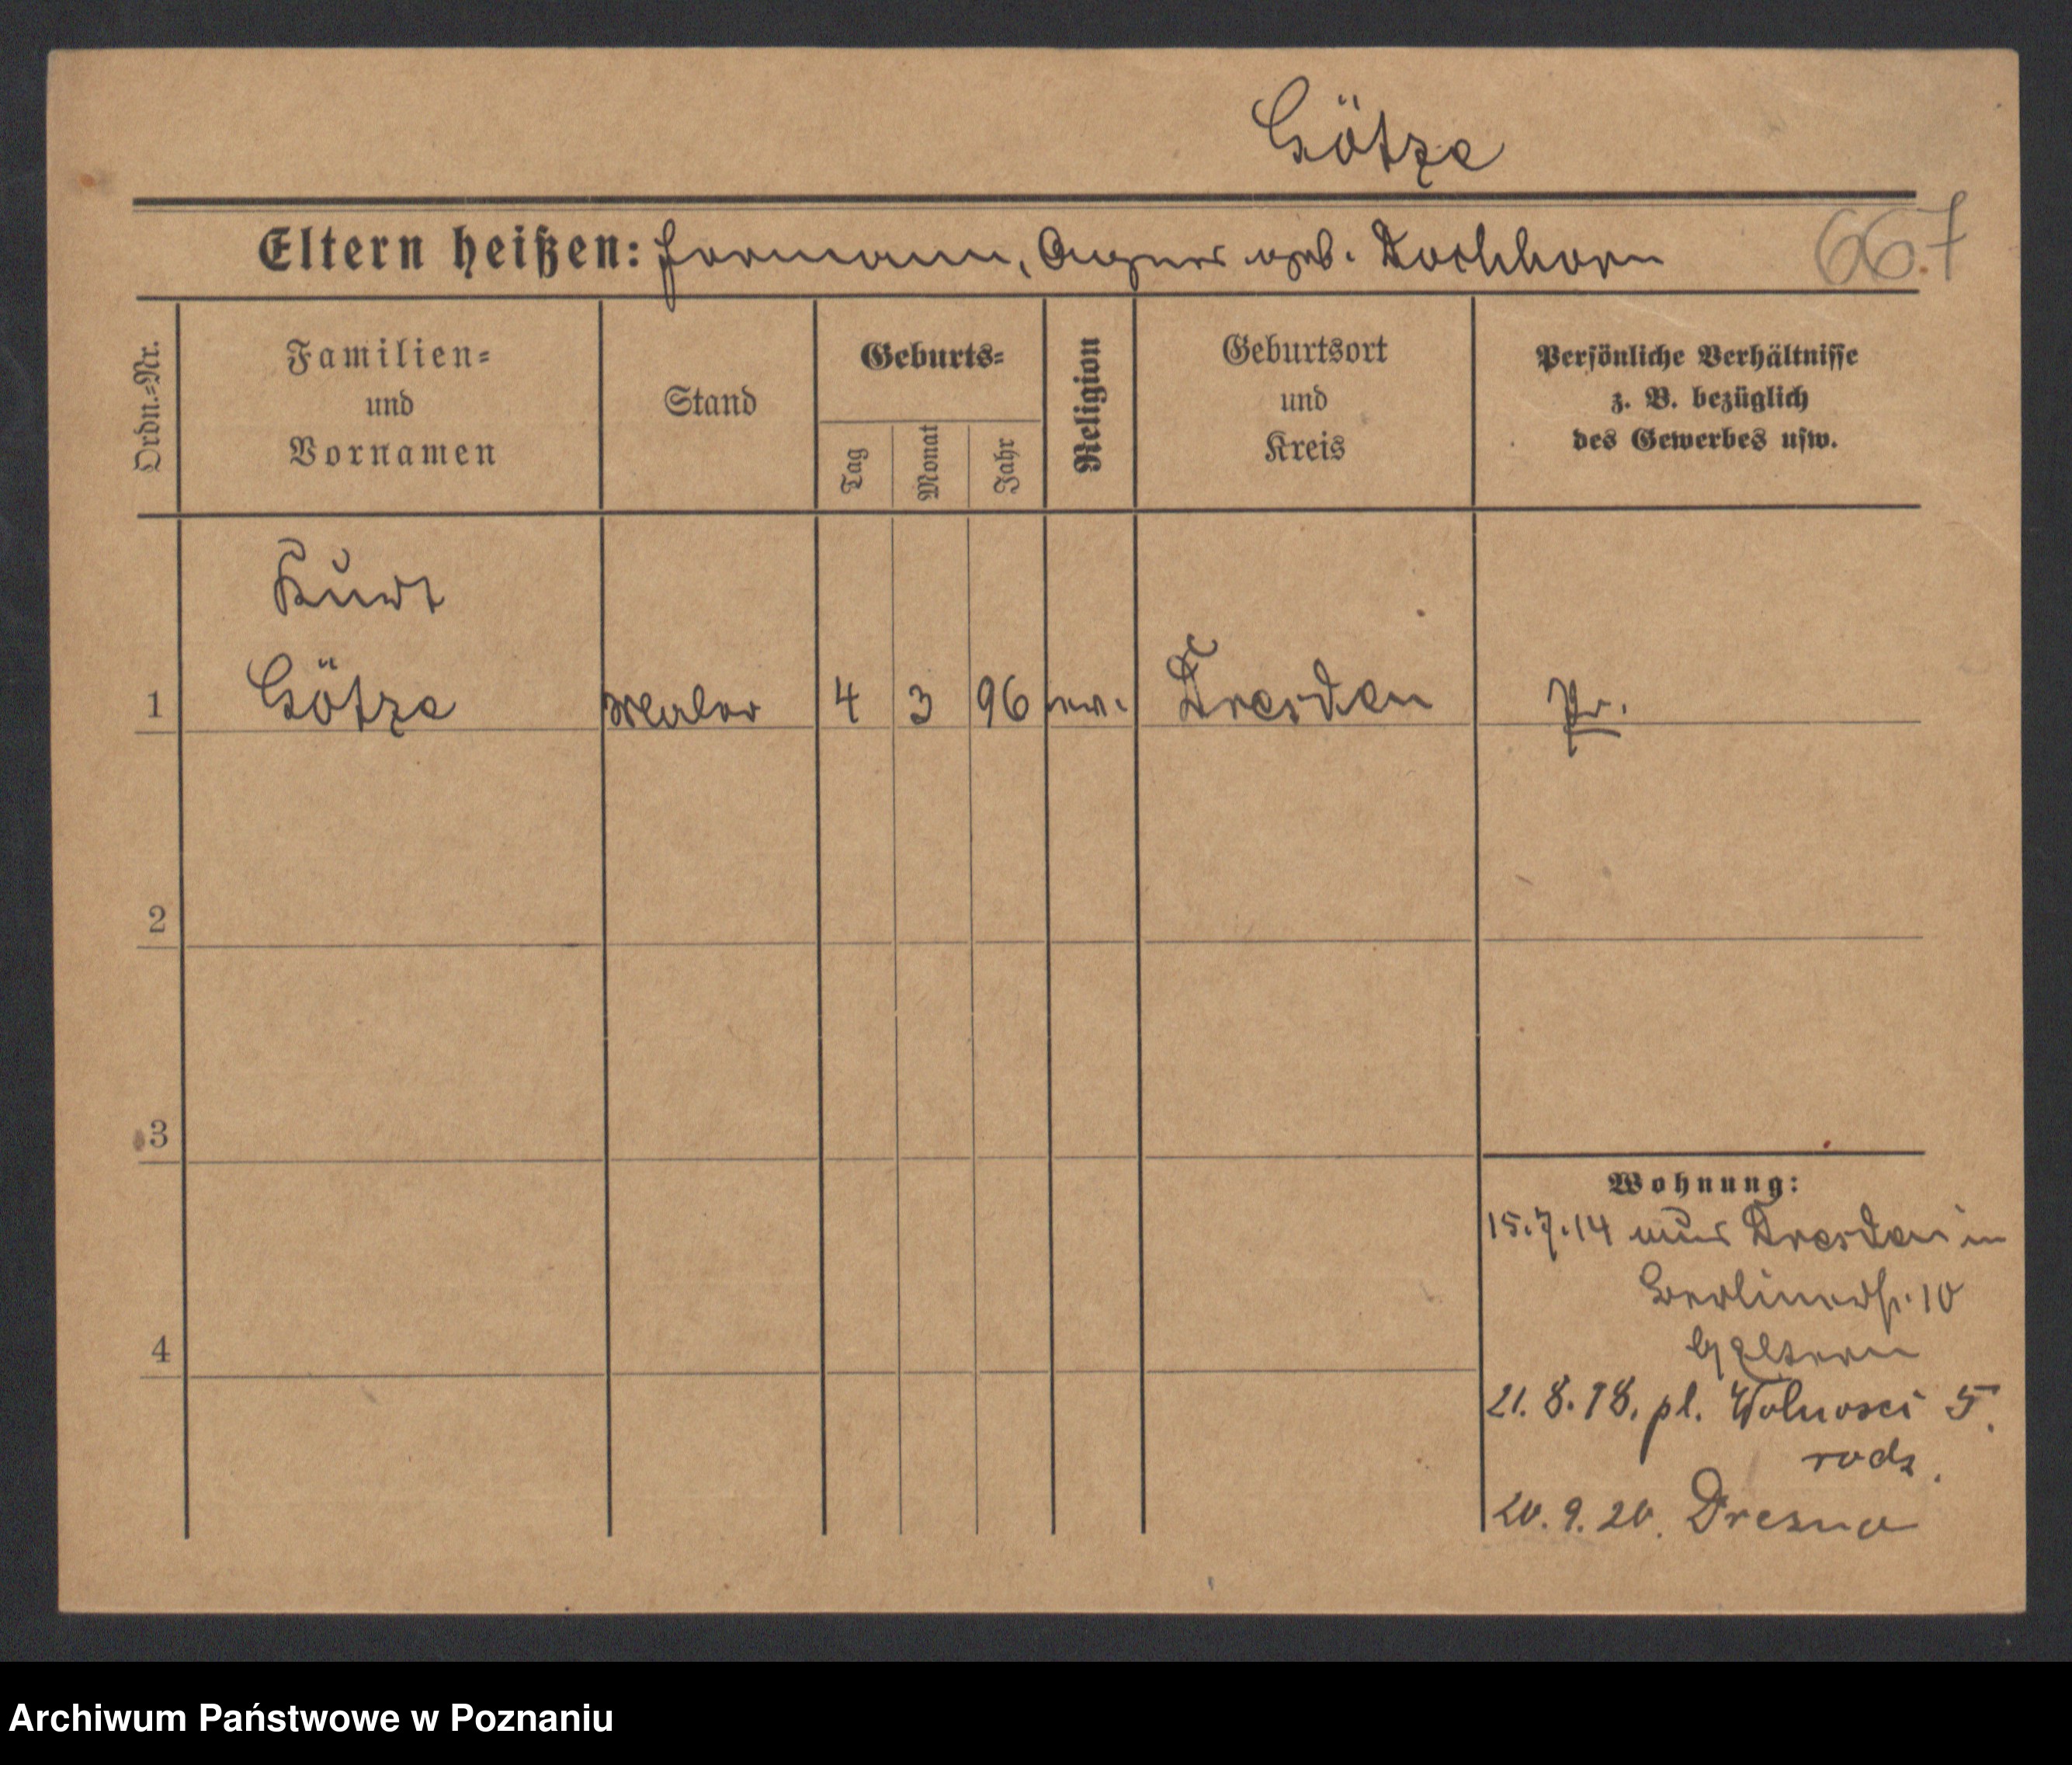 Götze
Eltern heißen: Hermann, Agnes geb. Dochhorn
667
Ordn.=Nr.
Familien=
und
Vornamen
Stand
Geburts=
Tag
Monat
Jahr
Religion
Geburtsort
und
Kreis
Persönliche Verhältnisse
z. B. bezüglich
des Gewerbes usw.
Kurt
1 Götze Maler 4 3 96 ev. Dresden Pr.
2
3
4
Wohnung:
15.7.14 aus Dresden in
Berlinerstr. 10
Eltern
21.8.18. pl. Wolnosci 5.
rodz.
20.9.20. Drezno
Archiwum Państwowe w Poznaniu